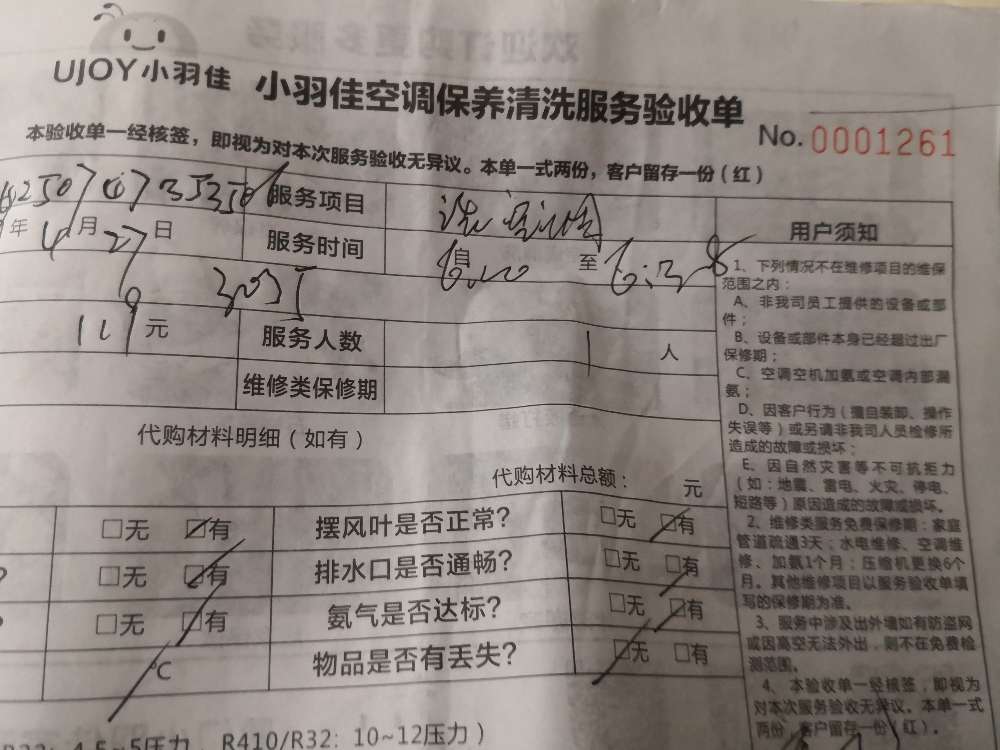 UJOY小羽佳 小羽佳空调保养清洗服务验收单
No. 0001261
本验收单一经核签，即视为对本次服务验收无异议。本单一式两份，客户留存一份（红）
服务项目
年 4 月 27 日
服务时间 自 至
119 元
服务人数 1 人
维修类保修期
代购材料明细（如有）
代购材料总额： 元
□无 □有 摆风叶是否正常? □无 □有
? □无 □有 排水口是否通畅? □无 □有
? □无 □有 氨气是否达标? □无 □有
℃ 物品是否有丢失? □无 □有
R22：4.5~5压力、R410/R32：10~12压力）
用户须知
1、下列情况不在维修项目的维保
范围之内：
A、非我司员工提供的设备或部
件；
B、设备或部件本身已经超过出厂
保修期；
C、空调空机加氨或空调内部漏
氨；
D、因客户行为（擅自装卸、操作
失误等）或另请非我司人员检修所
造成的故障或损坏；
E、因自然灾害等不可抗拒力
（如：地震、雷电、火灾、停电、
短路等）原因造成的故障或损坏。
2、维修类服务免费保修期：家庭
管道疏通3天；水电维修、空调维
修、加氨1个月；压缩机更换6个
月。其他维修项目以服务验收单填
写的保修期为准。
3、服务中涉及出外墙如有防盗网
或因高空无法外出，则不在免费检
测范围。
4、本验收单一经核签，即视为
对本次服务验收无异议。本单一式
两份，客户留存一份（红）。